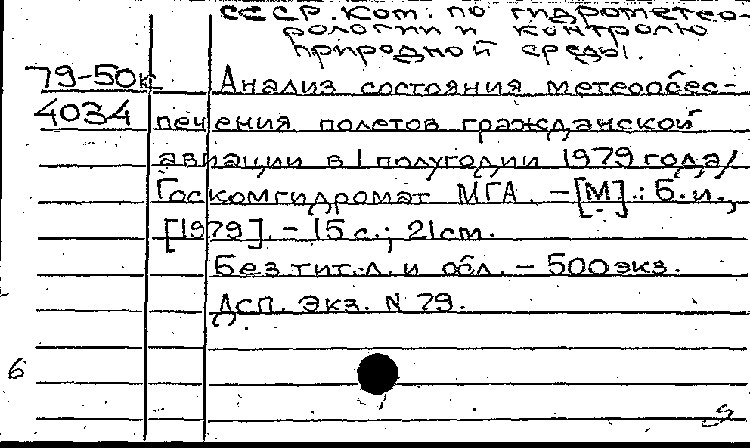 СССР. Ком. по гидрометео-
рологии и контролю
природной среды.
79-50к Анализ состояния метеообес-
4034 печения полетов гражданской
авиации в I полугодии 1979 года/
Госкомгидромет МГА. - [М].: Б.и.,
[1979]. - 15 с.; 21 см.
Без тит. л. и обл. - 500 экз.
Дсп. Экз. N 79.
6